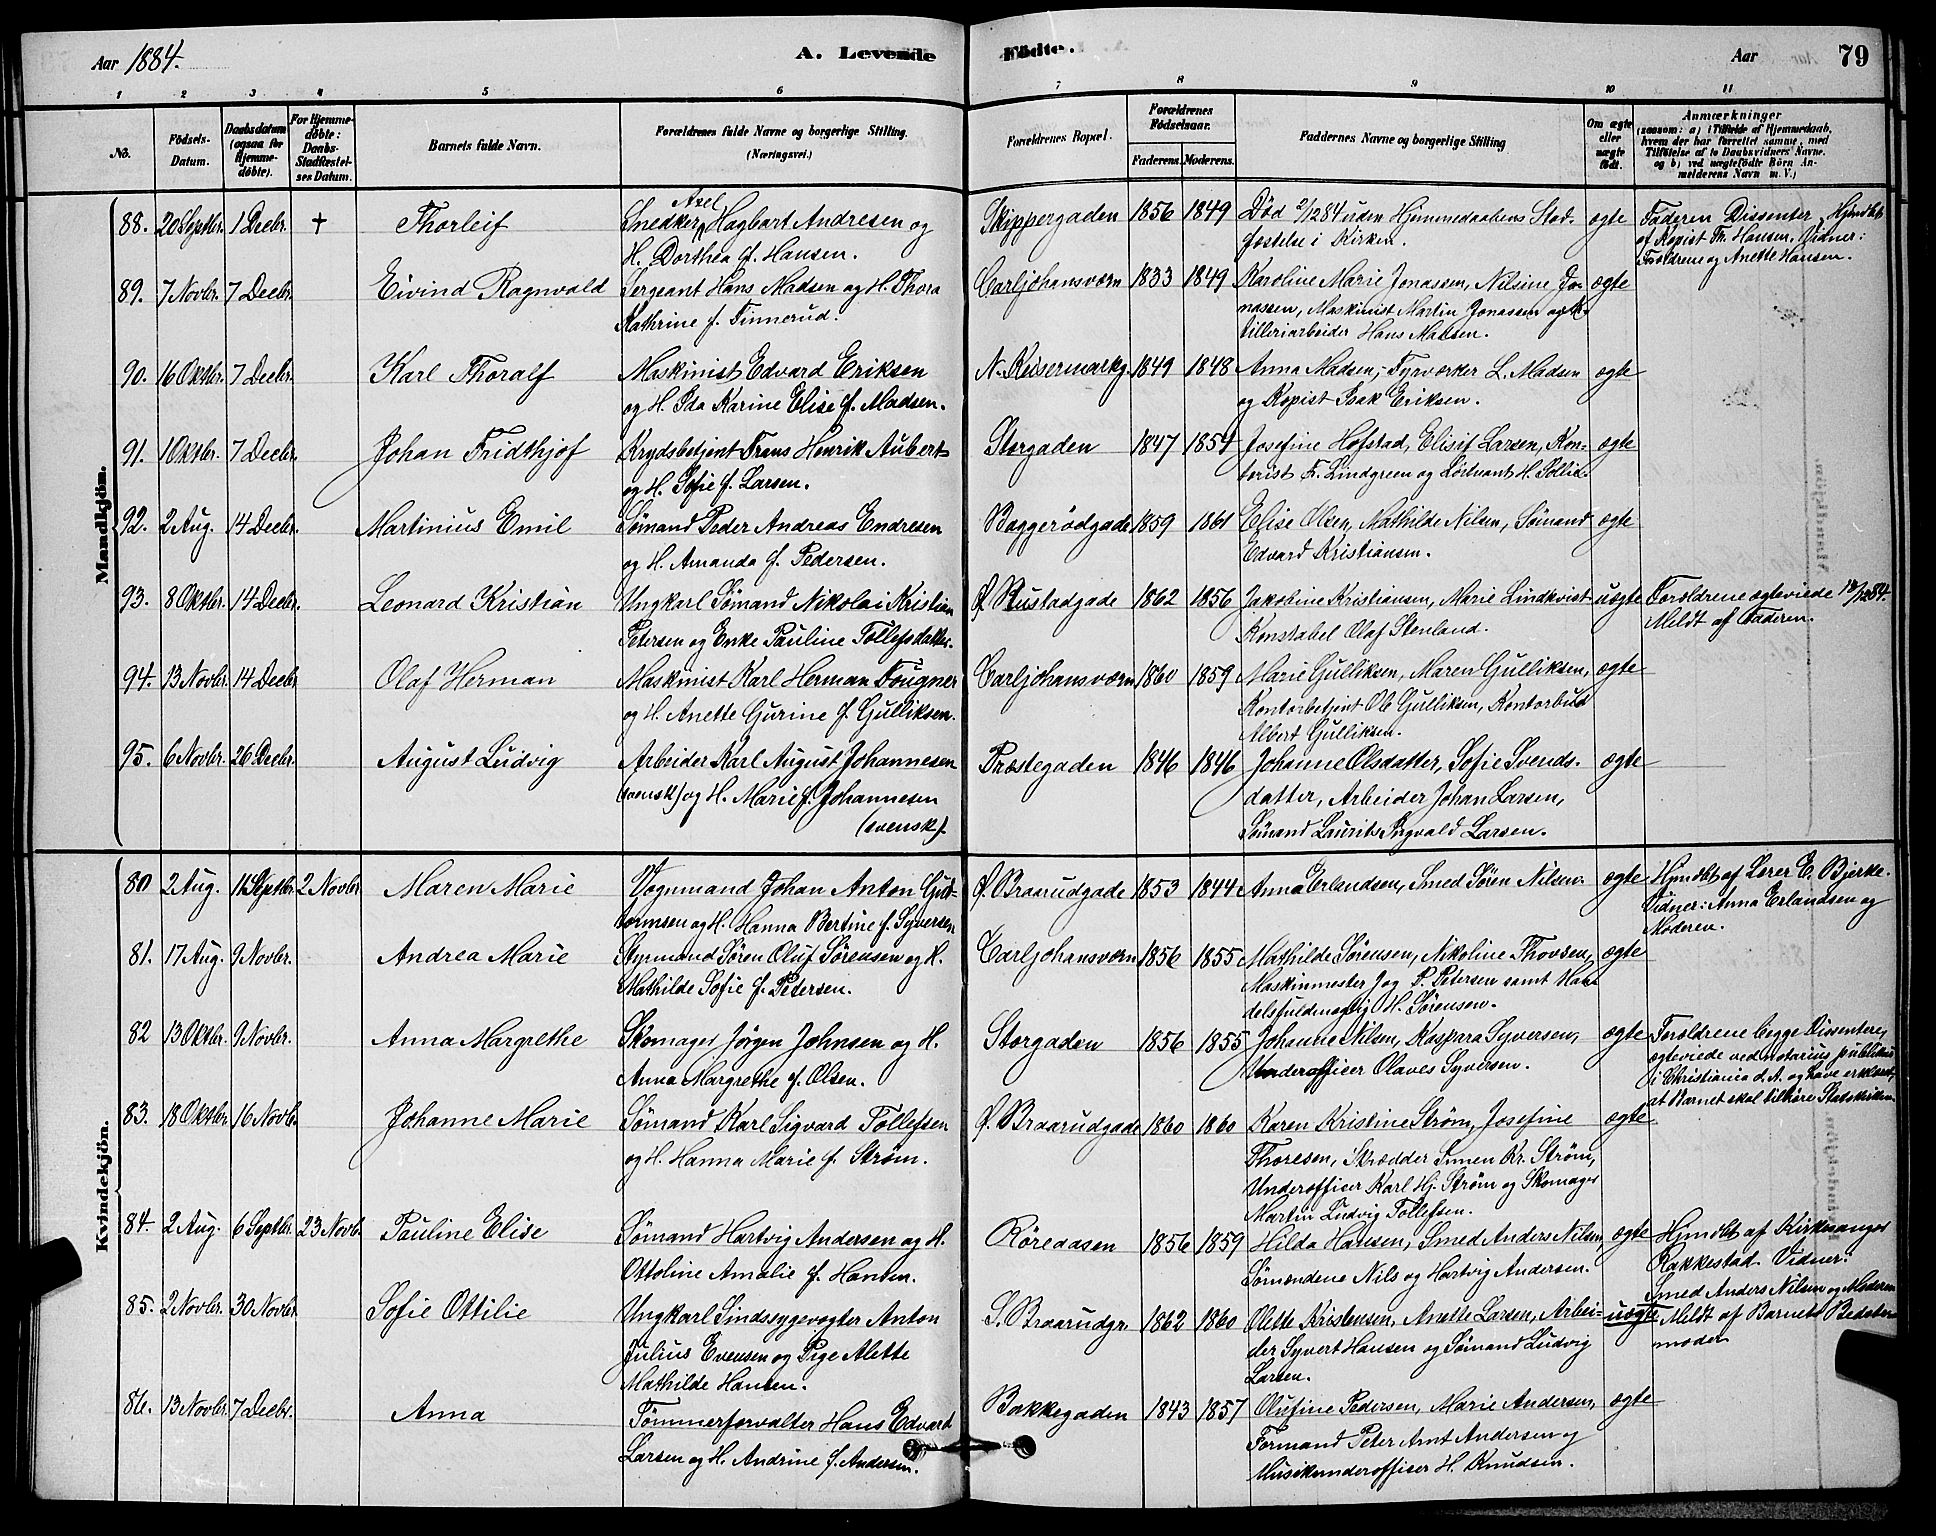 Aar 1884.
A. Levende
Fødte.
Aar
79
1 2 3 4 5 6 7 8 9 10 11
No.
Fødsels-
Datum.
Daabsdatum
(ogsaa for
Hjemme-
døbte).
For Hjemme-
døbte:
Daabs-
Stadfæstel-
ses Datum.
Barnets fulde Navn.
Forældrenes fulde Navne og borgerlige Stilling.
(Næringsvei.)
Forældrenes Bopæl.
Forældrenes
Fødselsaar.
Faderens. Moderens.
Faddernes Navne og borgerlige Stilling
Om ægte
eller
uægte
født.
Anmærkninger
(saasom: a) i Tilfælde af Hjemmedaab,
hvem der har forrettet samme, med
Tilføielse af to Daabsvidners Navne,
og b) ved uægtefødte Børn An-
melderens Navn m. V.)
Mandkjön.
88. 20 Septbr. 1 Decbr. † Thorleif
Axel
Snedker Hagbart Andresen og
H. Dorthea f. Hansen.
Skippergaden 1856 1849
Død 2/12 84 uden Hjemmedaabens Stad-
fæstelse i Kirken.
ægte
Faderen Dissenter. Hjmdbt
af Kopist Th. Hansen. Vidner:
Forældrene og Anette Hansen.
89. 7 Novbr. 7 Decbr. Eivind Ragnvald
Sergeant Hans Madsen og H. Thora
Kathrine f. Finnerud.
Carljohansværn 1833 1849
Karoline Marie Jonassen, Nilsine Jo-
nassen, Maskinist Martin Jonassen og Ar-
tilleriarbeider Hans Madsen.
ægte
90. 16 Oktbr. 7 Decbr. Karl Thoralf
Maskinist Edvard Eriksen
og H. Ida Karine Elise f. Madsen.
N. Keisermarkg. 1849 1848
Anna Madsen, Fyrværker L. Madsen
og Kopist Isak Eriksen.
ægte
91. 1 Oktbr. 7 Decbr. Johan Fridthjof
Krydsbetjent Frans Henrik Aubert
og H. Sofie f. Larsen.
Storgaden 1847 1854
Josefine Hofstad, Elisif Larsen, Kon-
torist F. Lindgreen og Løitnant H. Sollid.
ægte
92. 2 Aug. 14 Decbr. Martinius Emil
Sømand Peder Andreas Endresen
og H. Amanda f. Pedersen.
Baggerødgade 1859 1861
Elise Olsen, Mathilde Nilsen, Sømand
Edvard Kristiansen.
ægte
93. 8 Oktbr. 14 Decbr. Leonard Kristian
Ungkarl Sømand Nikolai Kristian
Petersen og Enke Pauline Tollefsdatter.
Ø. Rustadgade 1862 1856
Jakobine Kristiansen, Marie Lindkvist
Konstabel Olaf Stenland.
uægte
Forældrene ægteviede 18/12 84.
Meldt af Faderen.
94. 13 Novbr. 14 Decbr Olaf Herman
Maskinist Karl Herman Fougner
og H. Anette Gurine f. Gulliksen.
Carljohansværn 1860 1859
Marie Gulliksen, Maren Gulliksen,
Kontorbetjent Ole Gulliksen, Kontorbud
Albert Gulliksen.
ægte
95. 6 Novbr. 26 Decbr. August Ludvig
Arbeider Karl August Johannesen
(svensk) og H. Marie f. Johannesen
(svensk).
Præstegaden 1846 1846
Johanne Olsdatter, Sofie Svends-
datter, Arbeider Johan Larsen,
Sømand Laurits Ingvald Larsen.
ægte
Kvindekjön.
80 2 Aug. 11 Septbr. 2 Novbr Maren Marie
Vognmand Johan Anton Gut-
tormsen og H. Hanna Bertine f. Syversen
Ø. Braarudgade 1853 1844
Anna Erlandsen, Smed Søren Nilsen.
ægte
Hjmdbt af Lærer E. Bjerke.
Vidner: Anna Erlandsen og
Moderen.
81. 17 Aug. 9 Novbr. Andrea Marie
Styrmand Søren Oluf Sørensen og H.
Mathilde Sofie f. Petersen.
Carljohansværn 1856 1855
Mathilde Sørensen, Nikoline Thovsen,
Maskinmester Jag P. Petersen samt Han-
delsfuldmægtig H. Sørensen.
ægte
82 13 Oktbr. 9 Novbr. Anna Margrethe
Skomager Jørgen Johnsen og H.
Anna Margrethe f. Olsen.
Storgaden 1856 1855
Johanne Nilsen, Kaspara Syversen,
Underofficer Olaves Syversen.
ægte
Forældrene begge Dissentere,
ægteviede ved notarius publikus
i Christiania d. A. og have erklæret,
at Barnet skal tilhøre Statskirken.
83. 18 Oktbr. 16 Novb. Johanne Marie
Sømand Karl Sigvard Tollefsen
og H. Hanna Marie f. Strøm.
Ø. Braarudgade 1860 1860
Karen Kristine Strøm, Josefine
Thoresen, Skrædder Simen Kr. Strøm,
Underofficer Karl Hj. Strøm og Skomager
Martin Ludvig Tollefsen.
ægte
84. 2 Aug. 6 Septbr. 23 Novb. Pauline Elise
Sømand Hartvig Andersen og H.
Ottoline Amalie f. Hansen.
Røreaasen 1856 1859
Hilda Hansen, Smed Anders Nilsen,
Sømændene Nils og Hartvig Andersen.
ægte
Hjmdbt af Kirkesanger
Rakkestad. Vidner:
Smed Anders Nilsen og Moderen
85. 2 Novbr. 30 Novbr Sofie Ottilie
Ungkarl Sindssygevogter Anton
Julius Evensen og Pige Alette
Mathilde Hansen.
S. Braarudgr. 1862 1860
Olette Kristensen, Anette Larsen, Arbei-
der Syvert Hansen og Sømand Ludvig
Larsen.
uægte
Meldt af Barnets Bedste-
moder
86. 13 Novbr. 7 Decbr. Anna
Tømmerforvalter Hans Edvard
Larsen og H. Andrine f. Andersen.
Bakkegaden 1843 1857
Olufine Pedersen, Marie Andersen,
Formand Peter Arnt Andersen og
Musikunderofficer H. Knudsen.
ægte